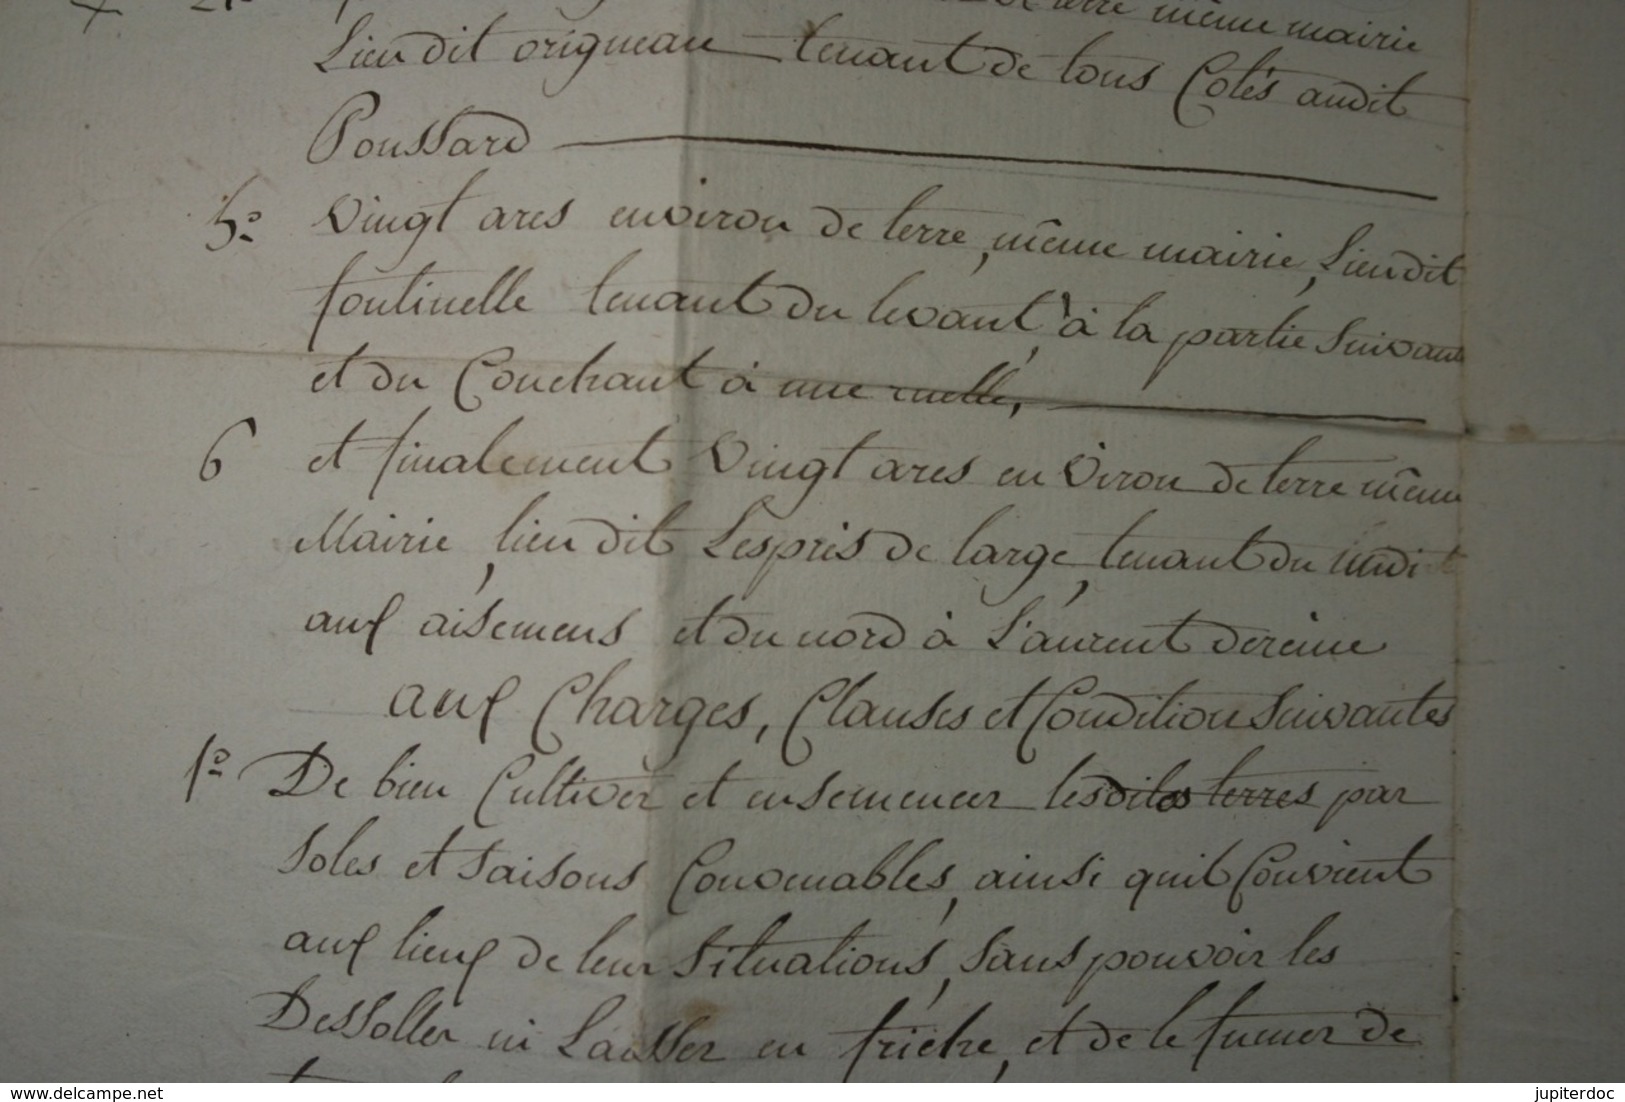 de terre même mairie
Lieu dit origneau tenant de tous Cotés audit
Poussard
5º Vingt ares environ de terre, même mairie, Lieu dit
fontinelle tenant du levant, à la partie Suivant
et du Couchant à une ruelle,
6 et finalement Vingt ares en Viron de terre même
Mairie, lieu dit Lespris de large, tenant du midi
aux aisemens et du nord à Laurent dereine
aux Charges, Clauses et Condition Suivantes
1º De bien Cultiver et ensemencer lesdites terres par
Soles et Saisons Convenables, ainsi quil Convient
aux lieux de leur Situations, Sans pouvoir les
Dessoller ni Laisser en friche, et de le fumer de
www.delcampe.net
jupiterdoc